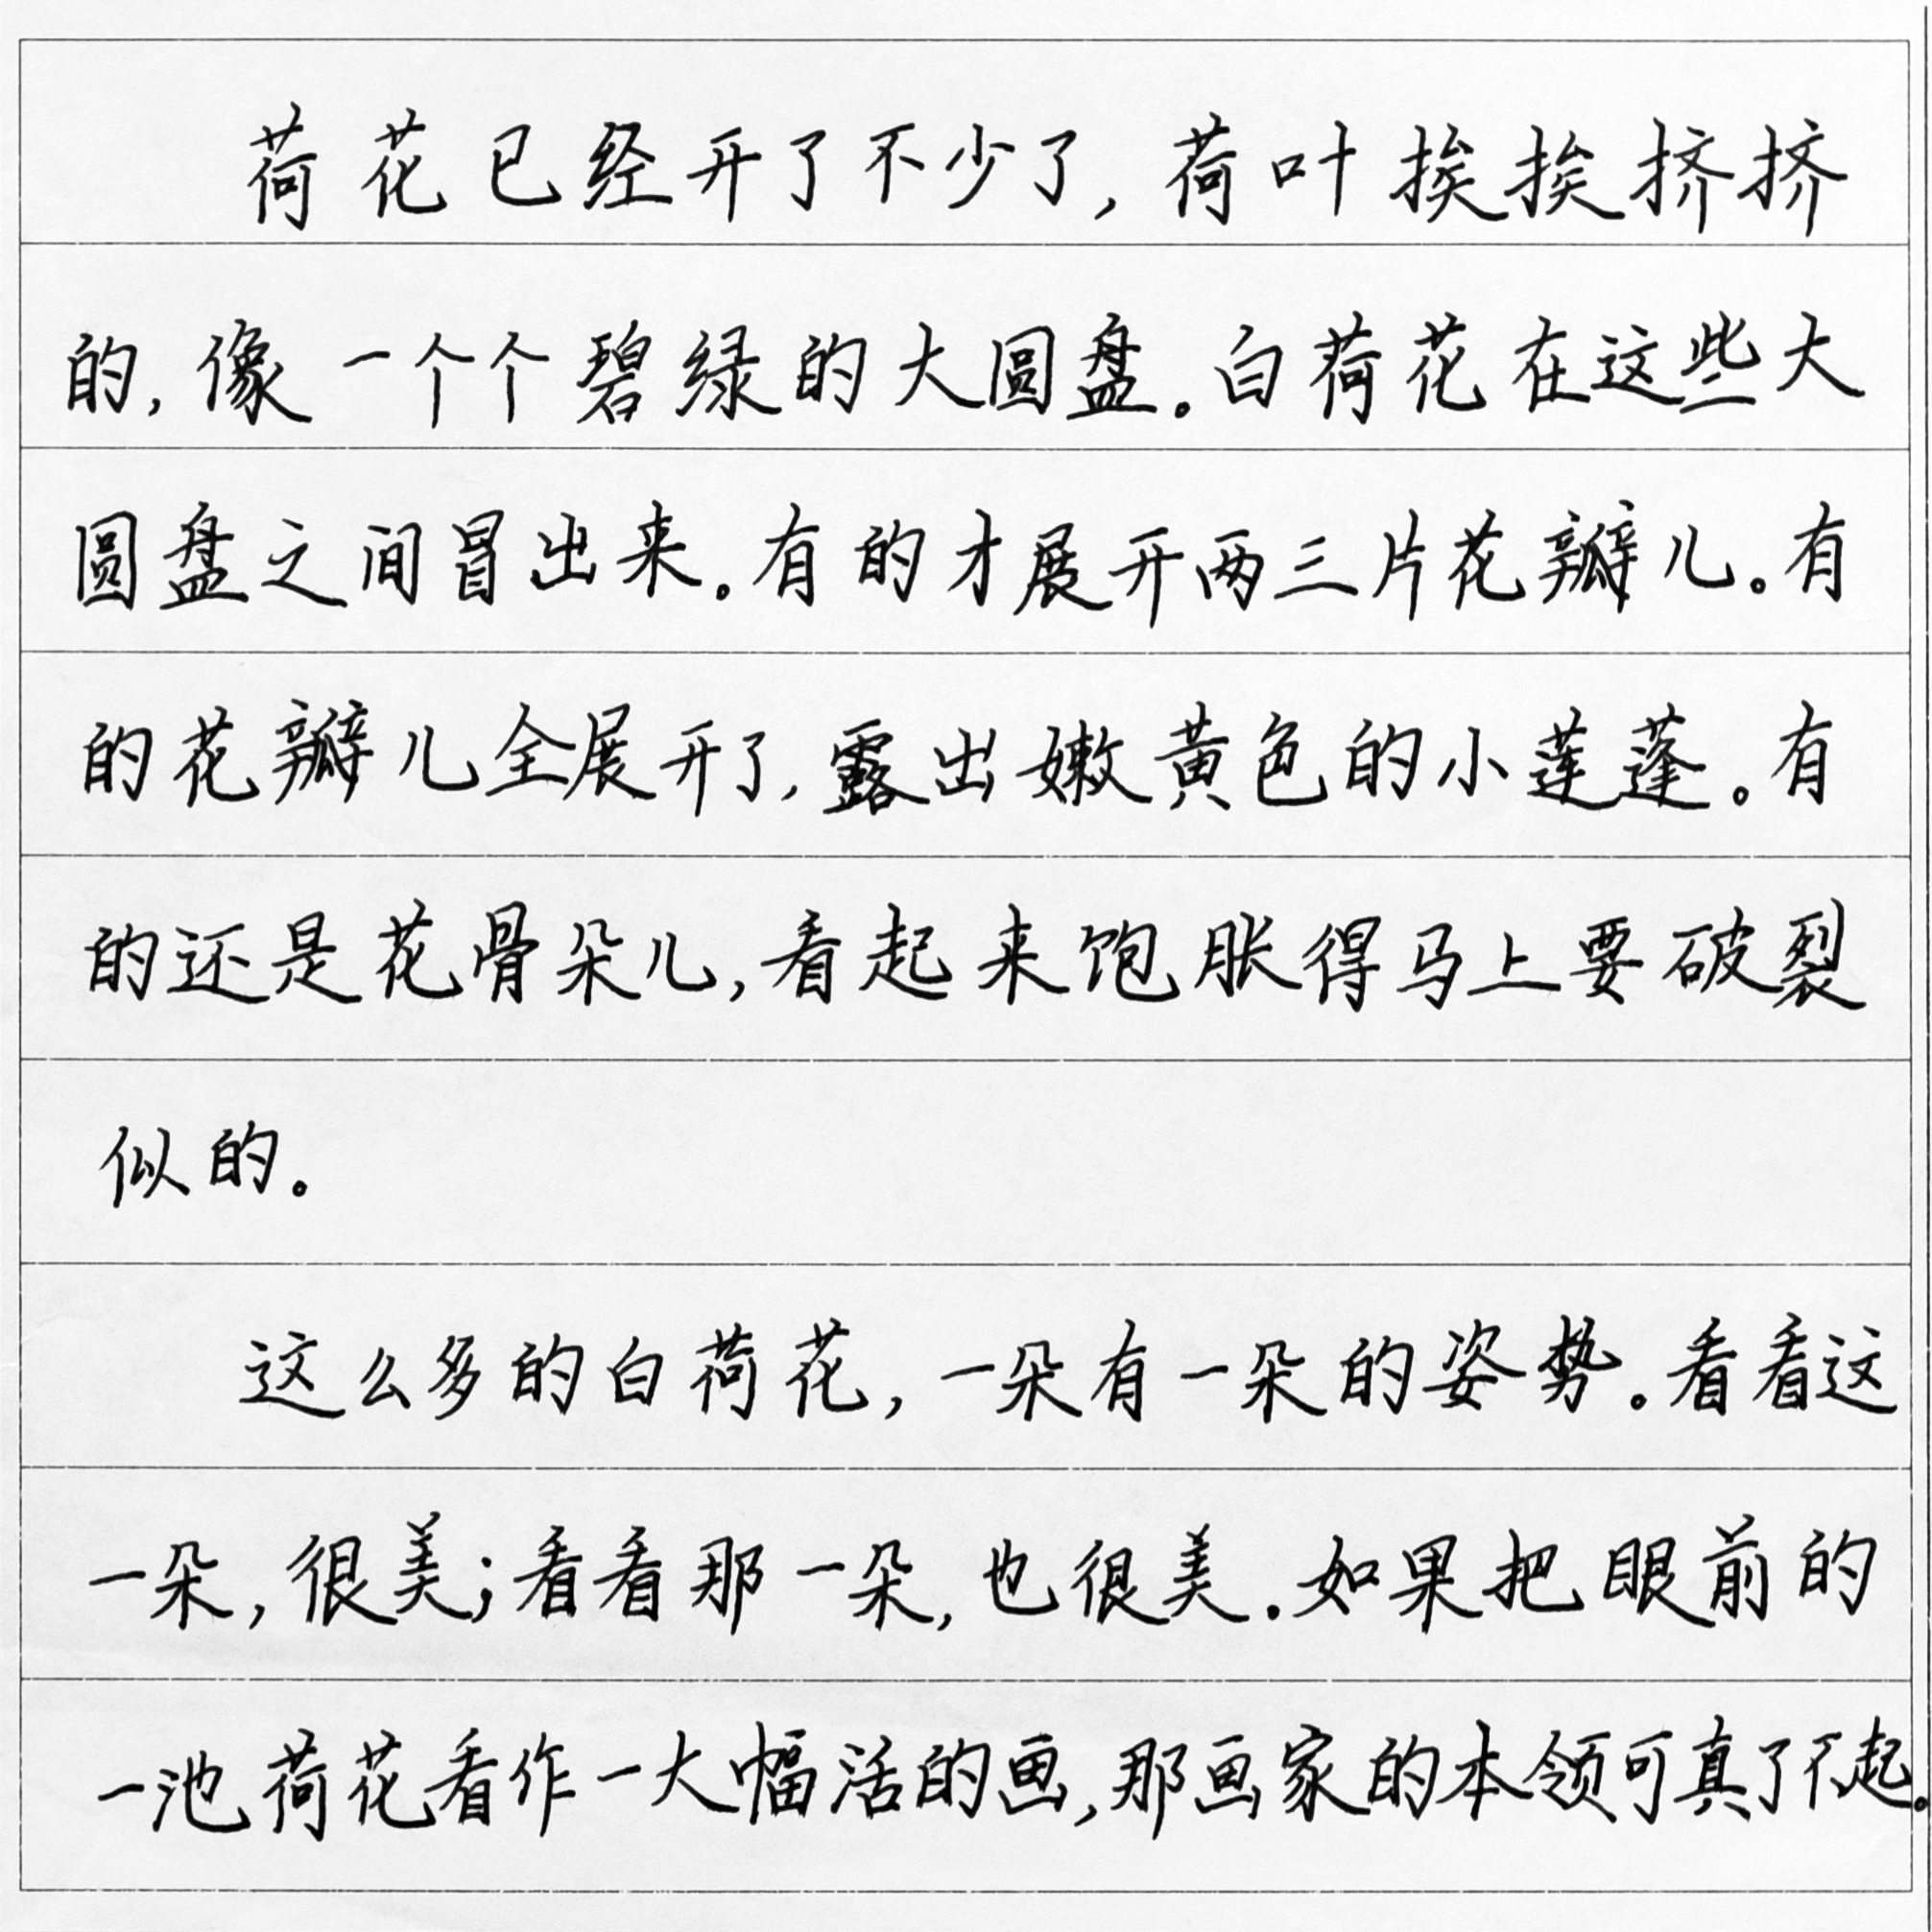 荷花已经开了不少了,荷叶挨挨挤挤
的,像一个个碧绿的大圆盘。白荷花在这些大
圆盘之间冒出来。有的才展开两三片花瓣儿。有
的花瓣儿全展开了,露出嫩黄色的小莲蓬。有
的还是花骨朵儿,看起来饱胀得马上要破裂
似的。
这么多的白荷花,一朵有一朵的姿势。看看这
一朵,很美;看看那一朵,也很美.如果把眼前的
一池荷花看作一大幅活的画,那画家的本领可真了不起。